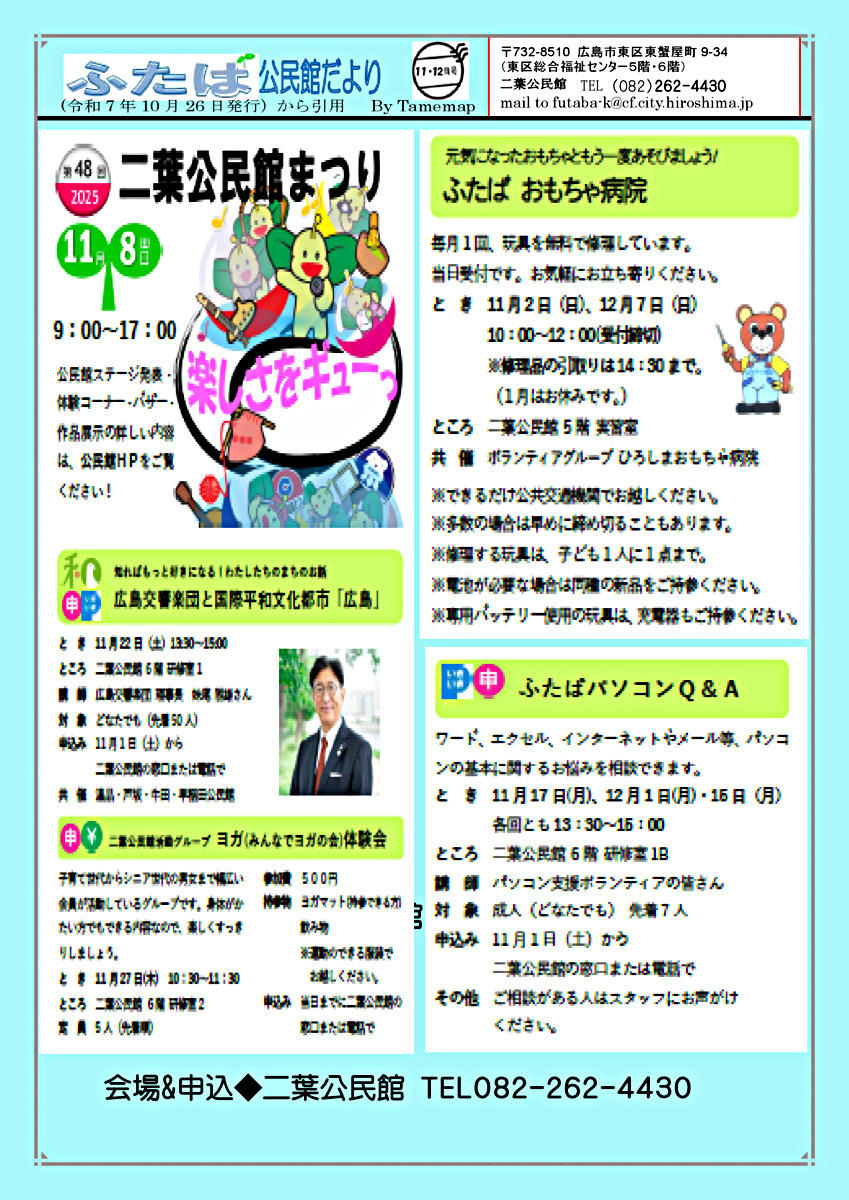 ふたば公民館だより
11・12月号
(令和7年10月26日発行) から引用 By Tamemap
〒732-8510 広島市東区東蟹屋町 9-34
(東区総合福祉センター5階・6階)
二葉公民館 TEL (082) 262-4430
mail to futaba-k@cf.city.hiroshima.jp
第48回
2025
二葉公民館まつり
11月8日
9：00～17：00
公民館ステージ発表・
体験コーナー・バザー・
作品展示の詳しい内容
は、公民館HPをご覧
ください！
楽しさをギューっ
知ればもっと好きになる！わたしたちのまちのお話
申
広島交響楽団と国際平和文化都市「広島」
と き 11月22日（土）13:30～15:00
ところ 二葉公民館6階 研修室1
講 師 広島交響楽団 理事長
対 象 どなたでも（先着50人）
申込み 11月1日（土）から
二葉公民館の窓口または電話で
共 催 温品・戸坂・牛田・早稲田公民館
申 ¥ 二葉公民館活動グループ ヨガ(みんなでヨガの会)体験会
子育て世代からシニア世代の男女まで幅広い
会員が活動しているグループです。身体がか
たい方でもできる内容なので、楽しくすっき
りしましょう。
と き 11月27日(木) 10：30～11：30
ところ 二葉公民館 6階 研修室2
定 員 5人（先着順）
参加費 ５００円
持参物 ヨガマット(持参できる方)
飲み物
※運動のできる服装で
お越しください。
申込み 当日までに二葉公民館の
窓口または電話で
元気になったおもちゃともう一度あそびましょう！
ふたば おもちゃ病院
毎月１回、玩具を無料で修理しています。
当日受付です。お気軽にお立ち寄りください。
と き 11月2日（日）、12月7日（日）
10：00～12：00(受付締切)
※修理品の引取りは14：30まで。
（1月はお休みです。）
ところ 二葉公民館5階 実習室
共 催 ボランティアグループ ひろしまおもちゃ病院
※できるだけ公共交通機関でお越しください。
※多数の場合は早めに締め切ることもあります。
※修理する玩具は、子ども1人に1点まで。
※電池が必要な場合は同種の新品をご持参ください。
※専用バッテリー使用の玩具は、充電器もご持参ください。
申 ふたばパソコンＱ＆Ａ
ワード、エクセル、インターネットやメール等、パソコ
ンの基本に関するお悩みを相談できます。
と き 11月17日(月)、12月1日(月)・15日（月）
各回とも13：30～15：00
ところ 二葉公民館6階 研修室1B
講 師 パソコン支援ボランティアの皆さん
対 象 成人（どなたでも） 先着7人
申込み 11月1日（土）から
二葉公民館の窓口または電話で
その他 ご相談がある人はスタッフにお声がけ
ください。
会場&申込◆二葉公民館 TEL082-262-4430